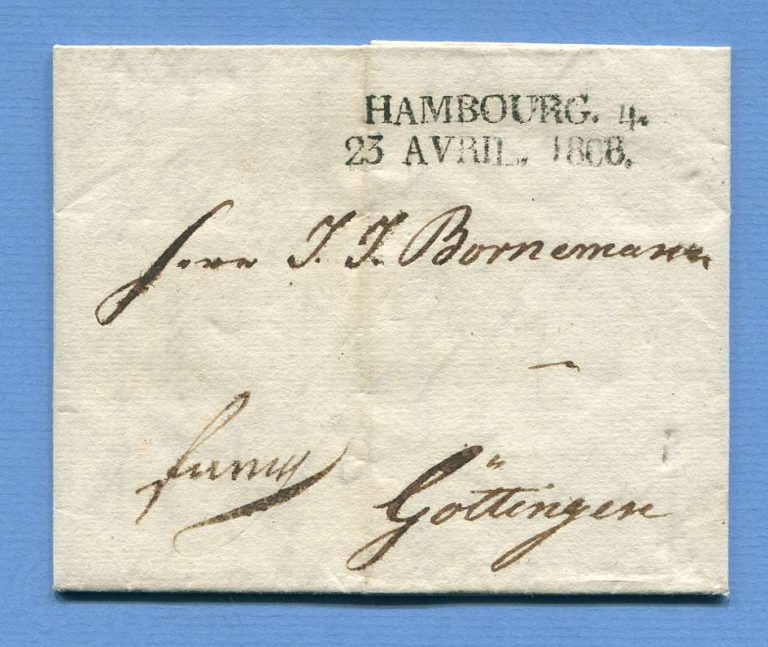 HAMBOURG. 4.
23 AVRIL. 1808.
Herr J. J. Bornemann
Göttingen